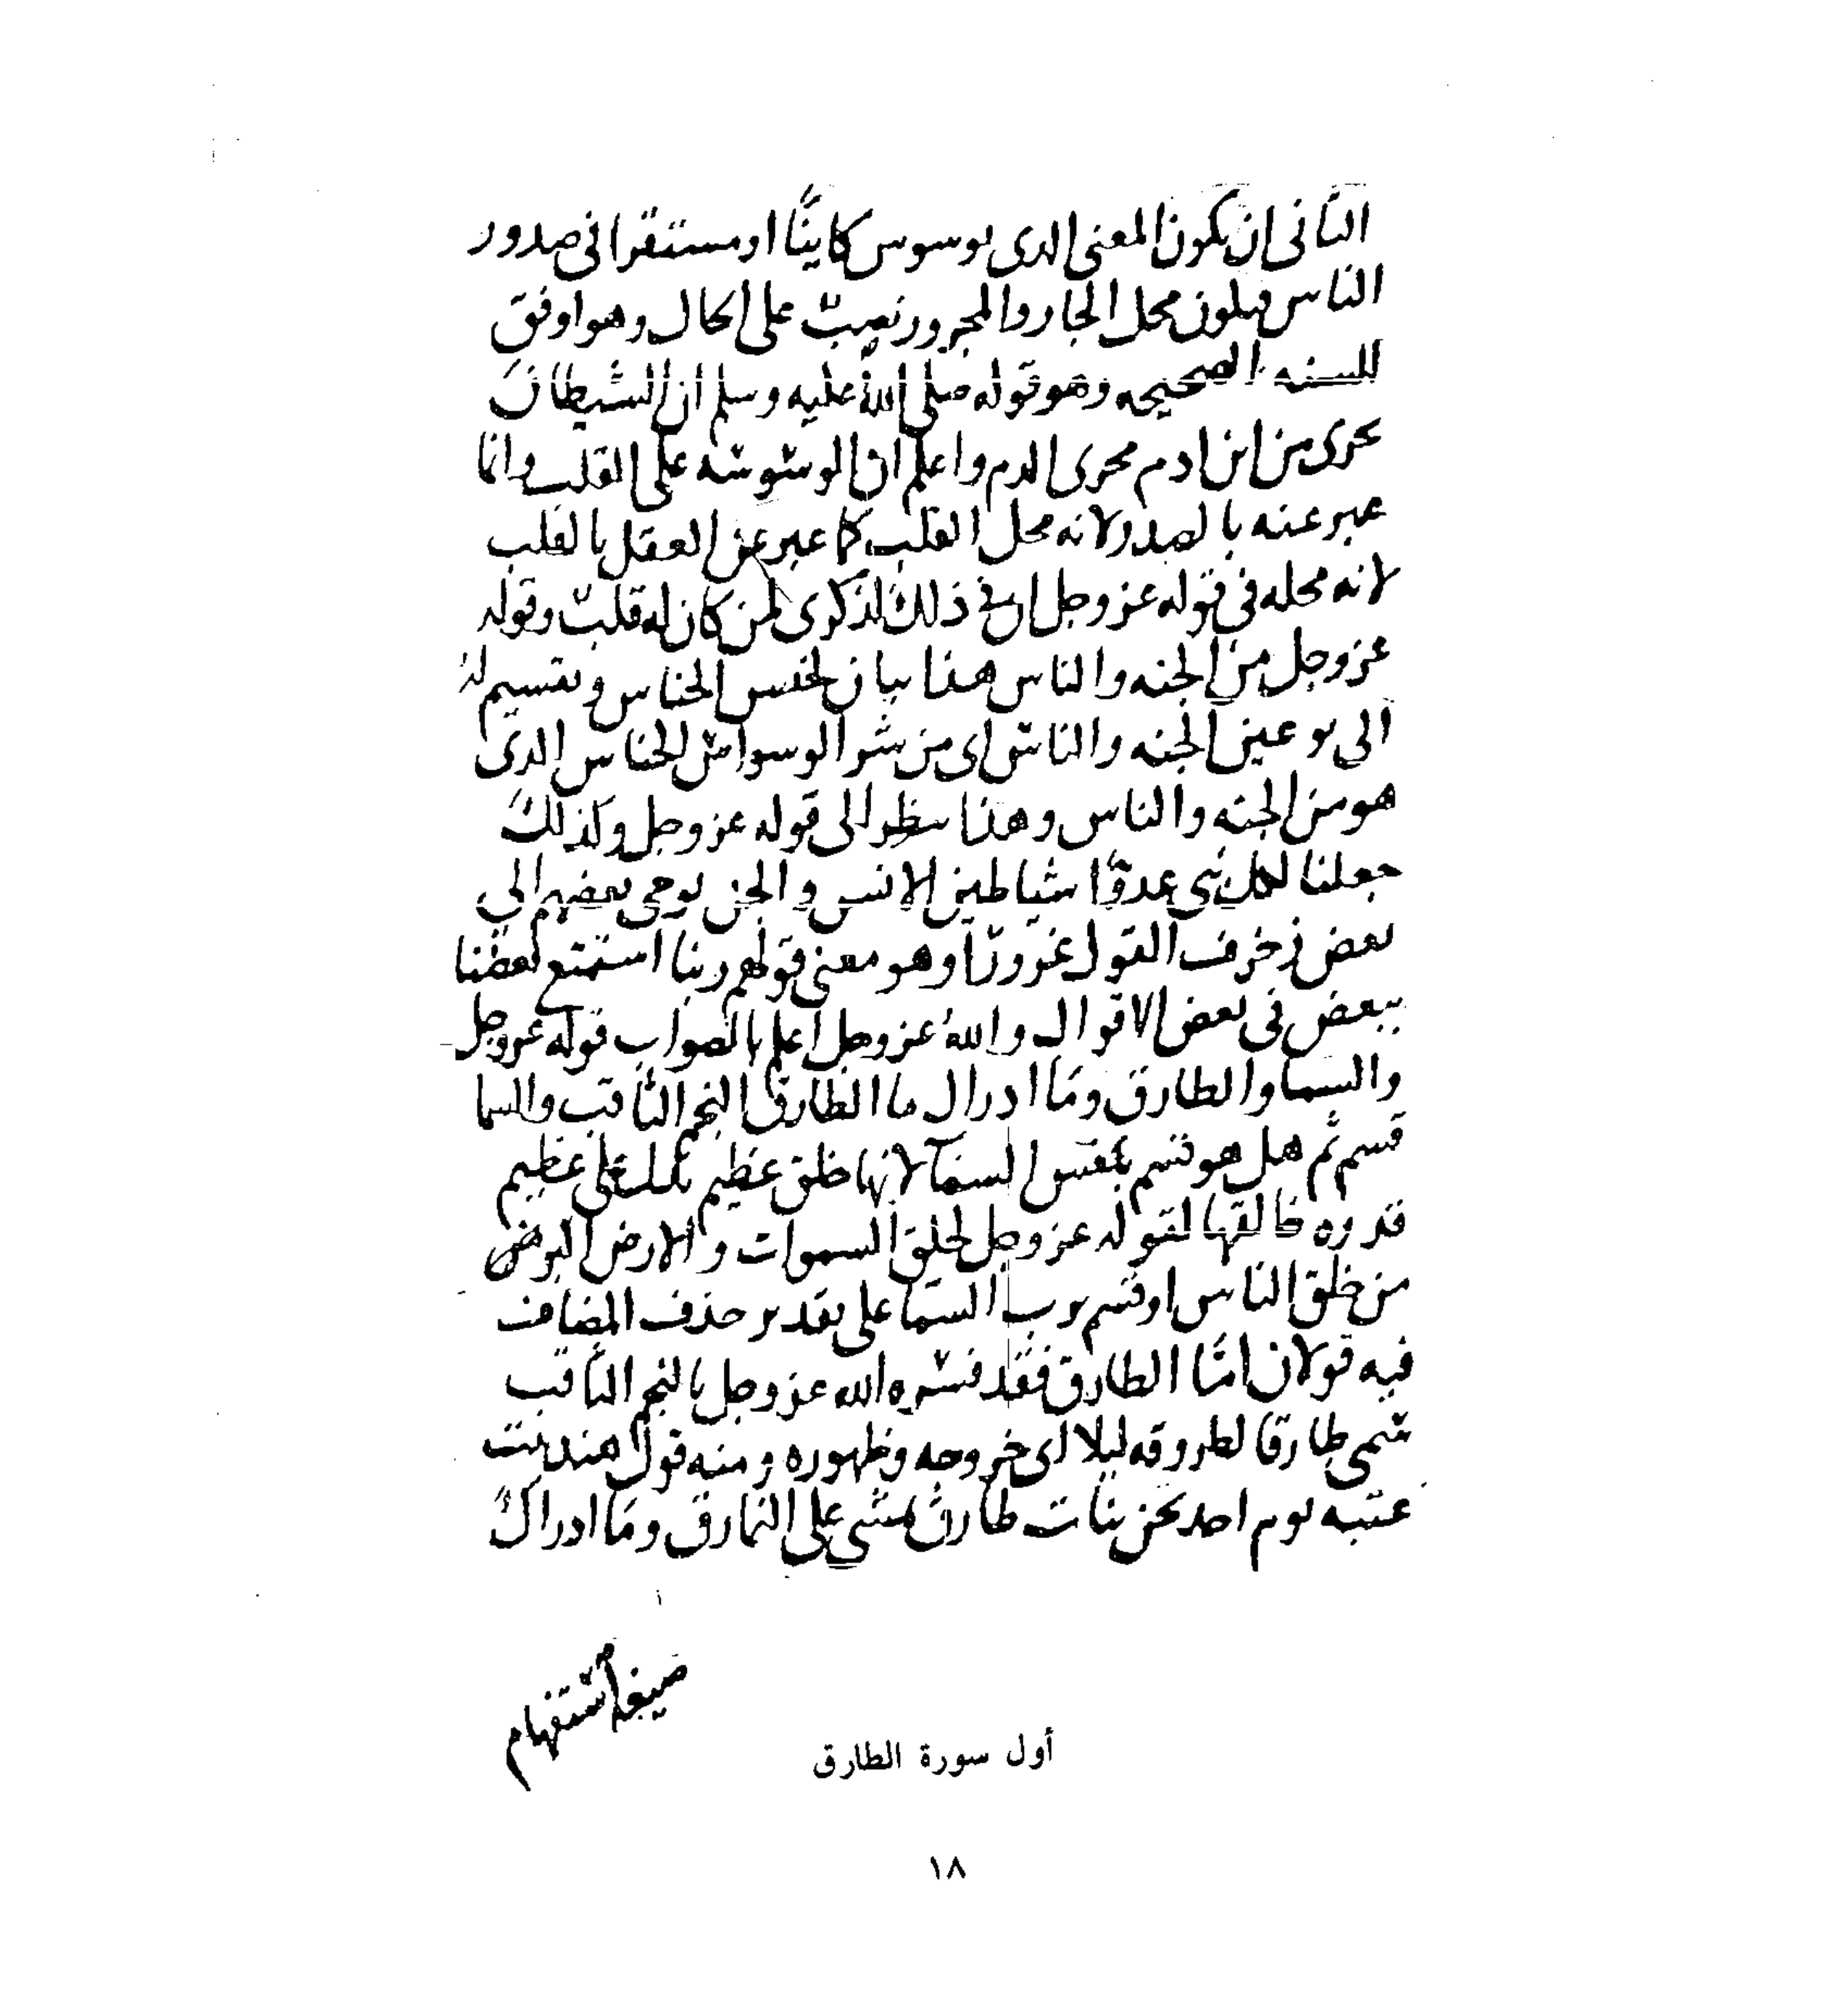 الثانى ان يكون المعنى الدى يوسوس كاينًا او مستقرا فى صدور
الناس فيكون محل الجار والمجرور نصبٌ على الحال وهو اوفق
للسنه الصحيحه وهو قوله صلى الله عليه وسلم ان الشيطانَ
يجرى من ابن ادم مجرى الدم واعلم ان الوسوسه على القلب وانما
عبر عنه بالصدر لانه محل القلب كما عبر عن العقل بالقلب
لانه محله فى قوله عز وجل ان فى ذلك لذكرى لمن كان له قلبٌ وقوله
عز وجل من الجنه والناس هذا بيان لجنس الخناس وتقسيم له
الى نوعين الجنه والناس اى من شر الوسواس الخناس الدى
هو من الجنه والناس وهذا ينظر الى قوله عز وجل وكذلكَ
جعلنا لكل نبى عدوًّا شياطين الانس والجن يوحى بعضهم الى
بعض زخرف القول غرورًا وهو معنى قولهم ربنا استمتع بعضنا
ببعض فى بعض الاقوال والله عز وجل اعلم بالصواب قوله عز وجل
والسما والطارق وما ادراك ما الطارق النجم الثاقب والسما
قسم ثم هل هو قسم بنفس السمآ لانها خلق عظيم يدلك على عظيم
قدره خالقها لقوله عز وجل لخلق السموات والارض اكبر
من خلق الناس او قسم برب السما على تقدير حذف المضاف
فيه قولان امّا الطارق فقد فسره الله عز وجل بالنجم الثاقب
سمى طارقا لطروقه ليلا اى خروجه وظهوره ومنه قول هند بنت
عتبه يوم احد نحن بنات طارق نمشى على النمارق وما ادراكَ
صيغه استفهام
أول سورة الطارق
١٨